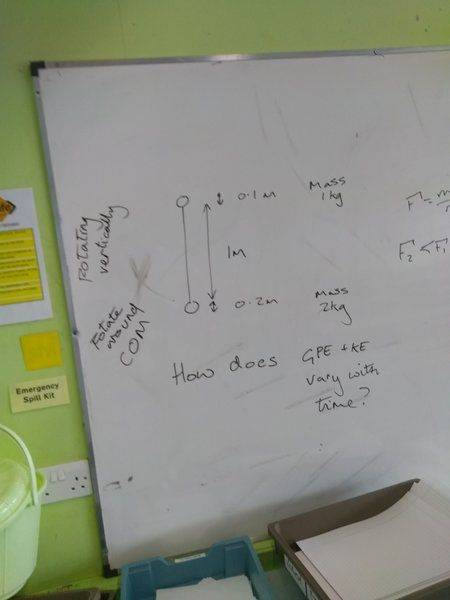 Rotating
vertically
Rotate
around
COM
0.1m
Mass
1kg
1m
0.2m
Mass
2kg
How does GPE + KE
vary with
time?
F₂ < F₁
Emergency
Spill Kit